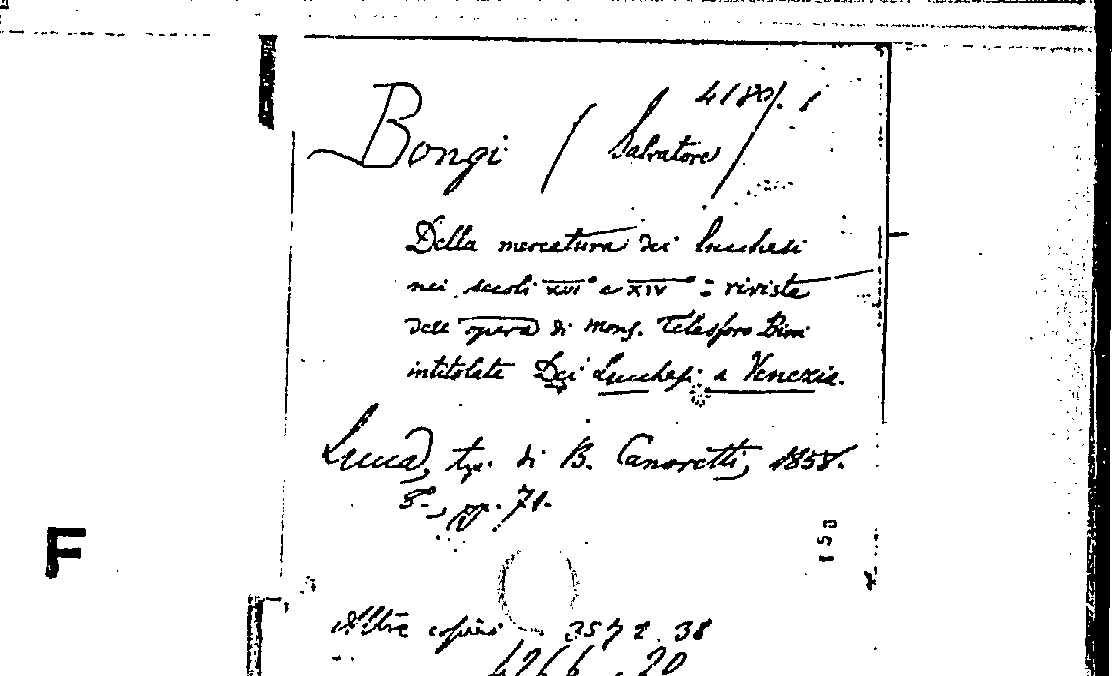 4180. 1
Bongi / Salvatore /
Della mercatura dei Lucchesi
nei secoli XIII° e XIV° : rivista
dell'opera di Mons. Telesforo Bini
intitolata Dei Lucchesi a Venezia.
Lucca, tip. di B. Canovetti, 1858.
8°, pp. 71.
F
150
Altre copie 3572. 38
4266. 20